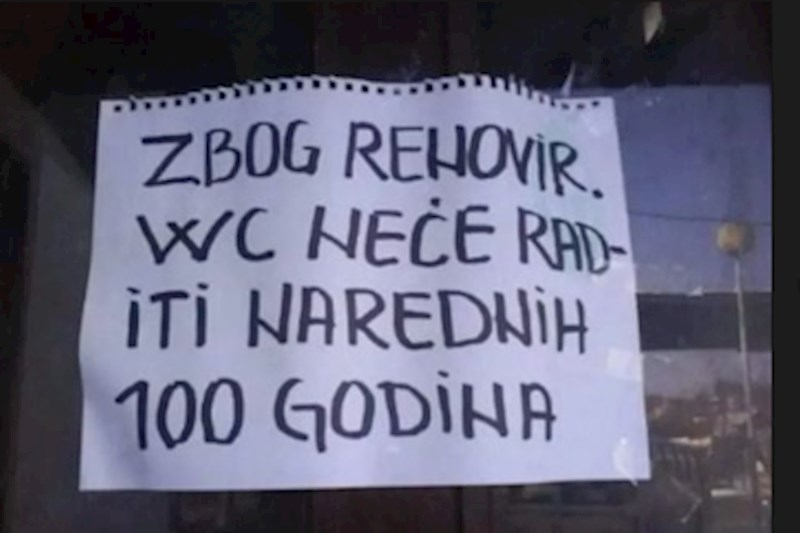 ZBOG RENOVIR.
WC NEĆE RAD-
ITI NAREDNIH
100 GODINA